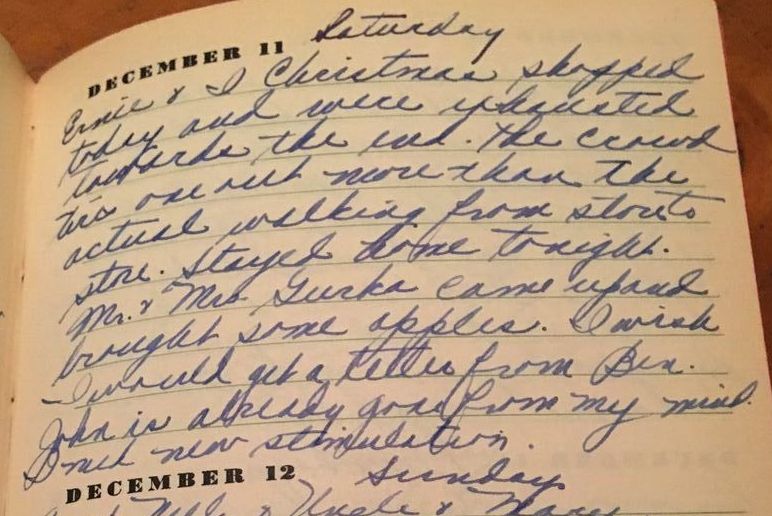 DECEMBER 11 Saturday
Ernie & I Christmas shopped
today and were exhausted
towards the end. The crowd
tire one out more than the
actual walking from store to
store. Stayed home tonight.
Mr. & Mrs. Gurka came up and
brought some apples. I wish
I would get a letter from Ben.
John is already gone from my mind.
I need new stimulation.
DECEMBER 12 Sunday
& Uncle & Mary